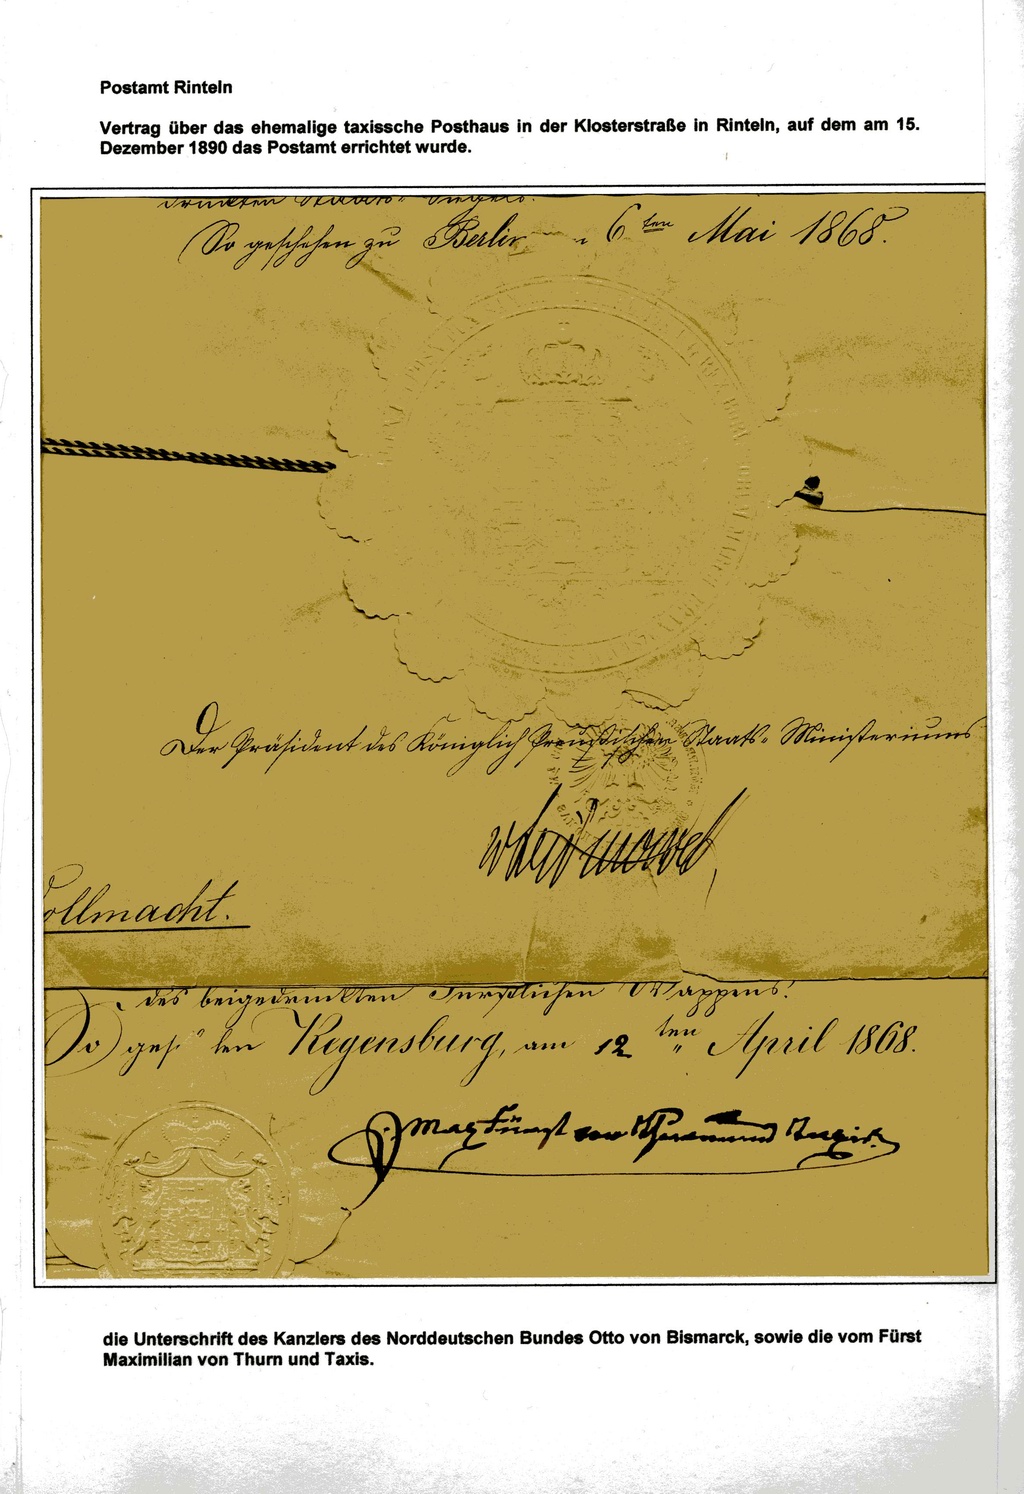 Postamt Rinteln
Vertrag über das ehemalige taxissche Posthaus in der Klosterstraße in Rinteln, auf dem am 15.
Dezember 1890 das Postamt errichtet wurde.
So geschehen zu Berlin 6ten Mai 1868.
Der Präsident des Königlich Preußischen Staats-Ministeriums
ollmacht.
des beigedruckten Fürstlichen Wappens.
So Regensburg, am 12ten April 1868.
Max Fürst von Thurn und Taxis
die Unterschrift des Kanzlers des Norddeutschen Bundes Otto von Bismarck, sowie die vom Fürst
Maximilian von Thurn und Taxis.